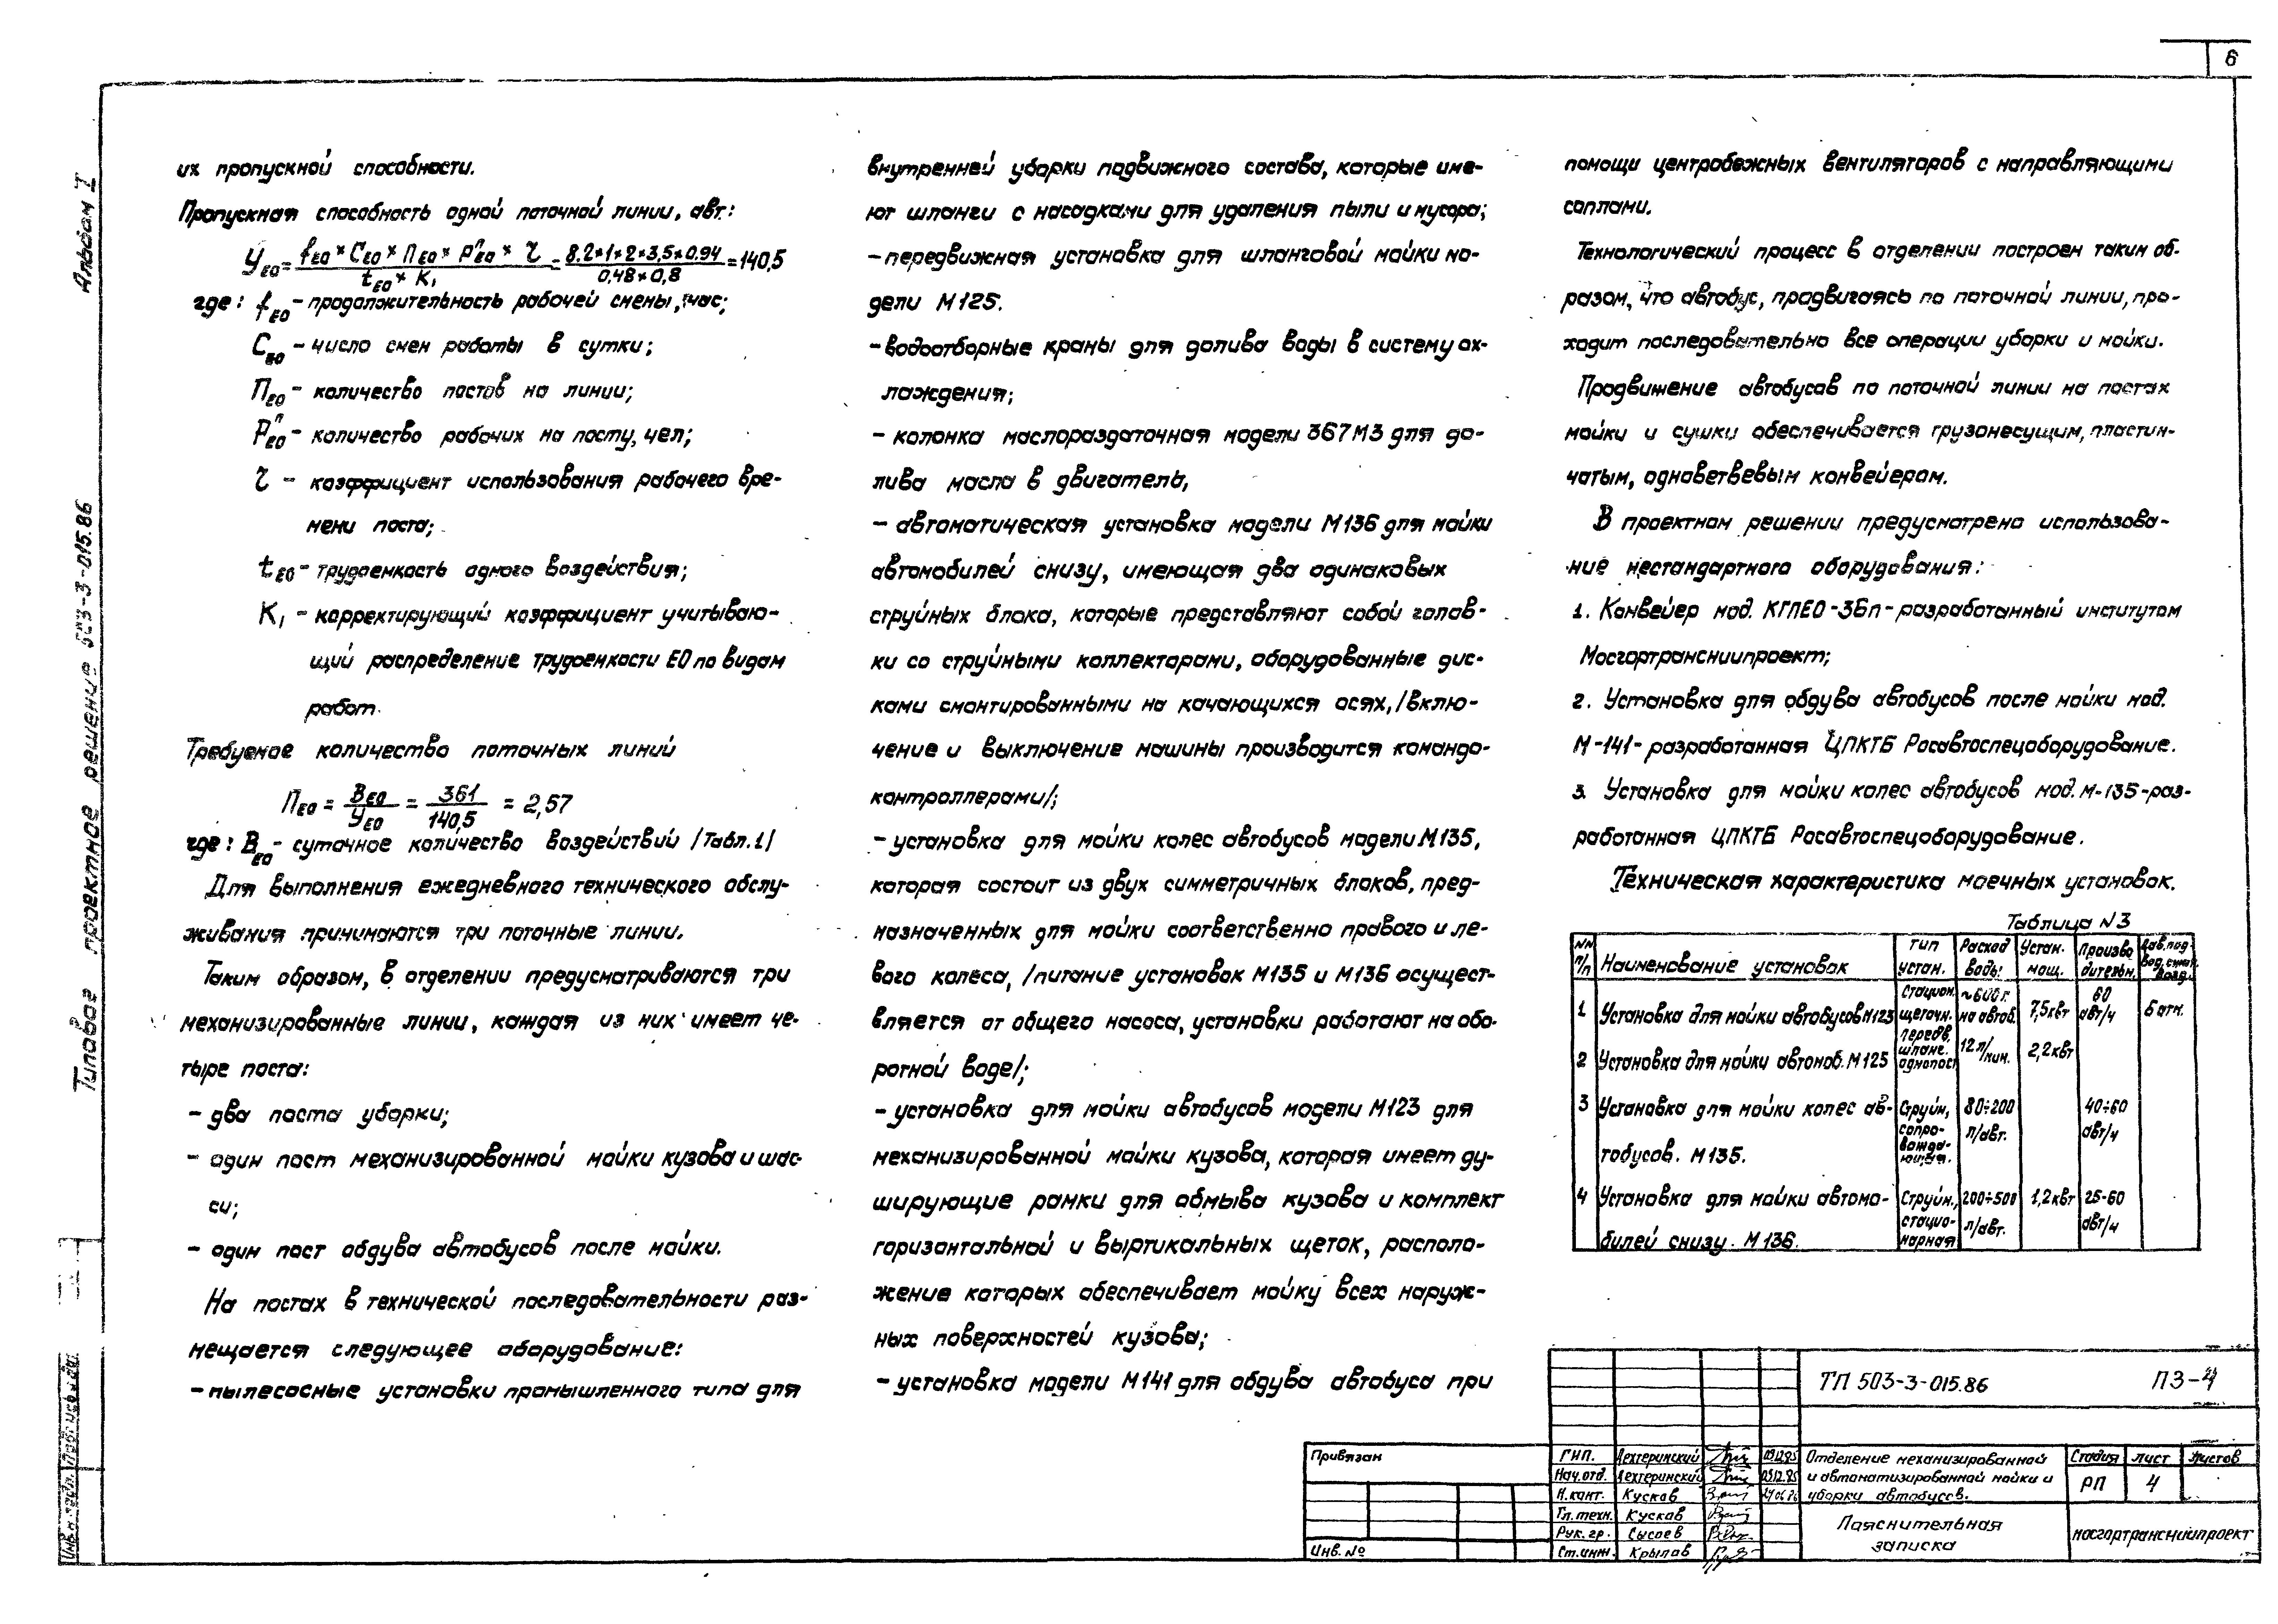 6
Альбом I
Типовое проектное решение 503-3-015.86
их пропускной способности.
Пропускная способность одной поточной линии, авт:
YЕО = fЕО × CЕО × ПЕО × PПЕО × τ / tЕО × K1 = 8.2×1×2×3,5×0.94 / 0,48×0,8 = 140,5
где: fЕО - продолжительность рабочей смены, час;
CЕО - число смен работы в сутки;
ПЕО - количество постов на линии;
PПЕО - количество рабочих на посту, чел;
τ - коэффициент использования рабочего вре-
мени поста;
tЕО - трудоемкость одного воздействия;
K1 - корректирующий коэффициент учитываю-
щий распределение трудоемкости ЕО по видам
работ.
Требуемое количество поточных линий
ПЕО = BЕО / YЕО = 361 / 140,5 = 2,57
где: BЕО - суточное количество воздействий /Табл.1/
Для выполнения ежедневного технического обслу-
живания принимаются три поточные линии.
Таким образом, в отделении предусматриваются три
механизированные линии, каждая из них имеет че-
тыре поста:
- два поста уборки;
- один пост механизированной мойки кузова и шас-
си;
- один пост обдува автобусов после мойки.
На постах в технической последовательности раз-
мещается следующее оборудование:
- пылесосные установки промышленного типа для
внутренней уборки подвижного состава, которые име-
ют шланги с насадками для удаления пыли и мусора;
- передвижная установка для шланговой мойки мо-
дели М125.
- водоотборные краны для долива воды в систему ох-
лаждения;
- колонка маслораздаточная модели 367М3 для до-
лива масла в двигатель,
- автоматическая установка модели М136 для мойки
автомобилей снизу, имеющая два одинаковых
струйных блока, которые представляют собой голов-
ки со струйными коллекторами, оборудованные дис-
ками смонтированными на качающихся осях, /вклю-
чение и выключение машины производится командо-
контроллерами/;
- установка для мойки колес автобусов модели М135,
которая состоит из двух симметричных блоков, пред-
назначенных для мойки соответственно правого и ле-
вого колеса, /питание установок М135 и М136 осущест-
вляется от общего насоса, установки работают на обо-
ротной воде/;
- установка для мойки автобусов модели М123 для
механизированной мойки кузова, которая имеет ду-
ширующие рамки для обмыва кузова и комплект
горизонтальной и выртикальных щеток, располо-
жение которых обеспечивает мойку всех наруж-
ных поверхностей кузова;
- установка модели М141 для обдува автобуса при
помощи центробежных вентиляторов с направляющими
соплами.
Технологический процесс в отделении построен таким об-
разом, что автобус, продвигаясь по поточной линии, про-
ходит последовательно все операции уборки и мойки.
Продвижение автобусов по поточной линии на постах
мойки и сушки обеспечивается грузонесущим, пластин-
чатым, одноветвевым конвейером.
В проектном решении предусмотрено использова-
ние нестандартного оборудования:
1. Конвейер мод. КГПЕО-36п - разработанный институтом
Мосгортрансниипроект;
2. Установка для обдува автобусов после мойки мод.
М-141 - разработанная ЦПКТБ Росавтоспецоборудование.
3. Установка для мойки колес автобусов мод. М-135 - раз-
работанная ЦПКТБ Росавтоспецоборудование.
Техническая характеристика моечных установок.
Таблица N3
NN п/п Наименование установок Тип устан. Расход воды Устан. мощ. Произво дительн. Дав. под
1 Установка для мойки автобусов М123 Стацион. щеточн. ~600г. на автоб. 7,5квт 60 авт/ч 6 атм.
2 Установка для мойки автомоб. М125 передв. шланг. однопост 12 л/мин. 2,2квт
3 Установка для мойки колес ав- тобусов. М135. Струйн, сопро- вожда- ющая. 80÷200 л/авт. 40÷60 авт/ч
4 Установка для мойки автомо- билей снизу. М136. Струйн., стацио- нарная 200÷500 л/авт. 1,2квт 25-60 авт/ч
ТП 503-3-015.86 ПЗ-4
Привязан
Инв. №
ГИП. Лехтеринский 09.12.85
Нач.отд. Лехтеринский 09.12.85
Н.конт. Кусков
Гл.техн. Кусков
Рук.гр. Сысоев
Ст.инж. Крылов
Отделение механизированной
и автоматизированной мойки и
уборки автобусов.
Стадия Лист Листов
РП 4
Пояснительная
записка
мосгортрансниипроект
Инв.N подл. Подпись и дата